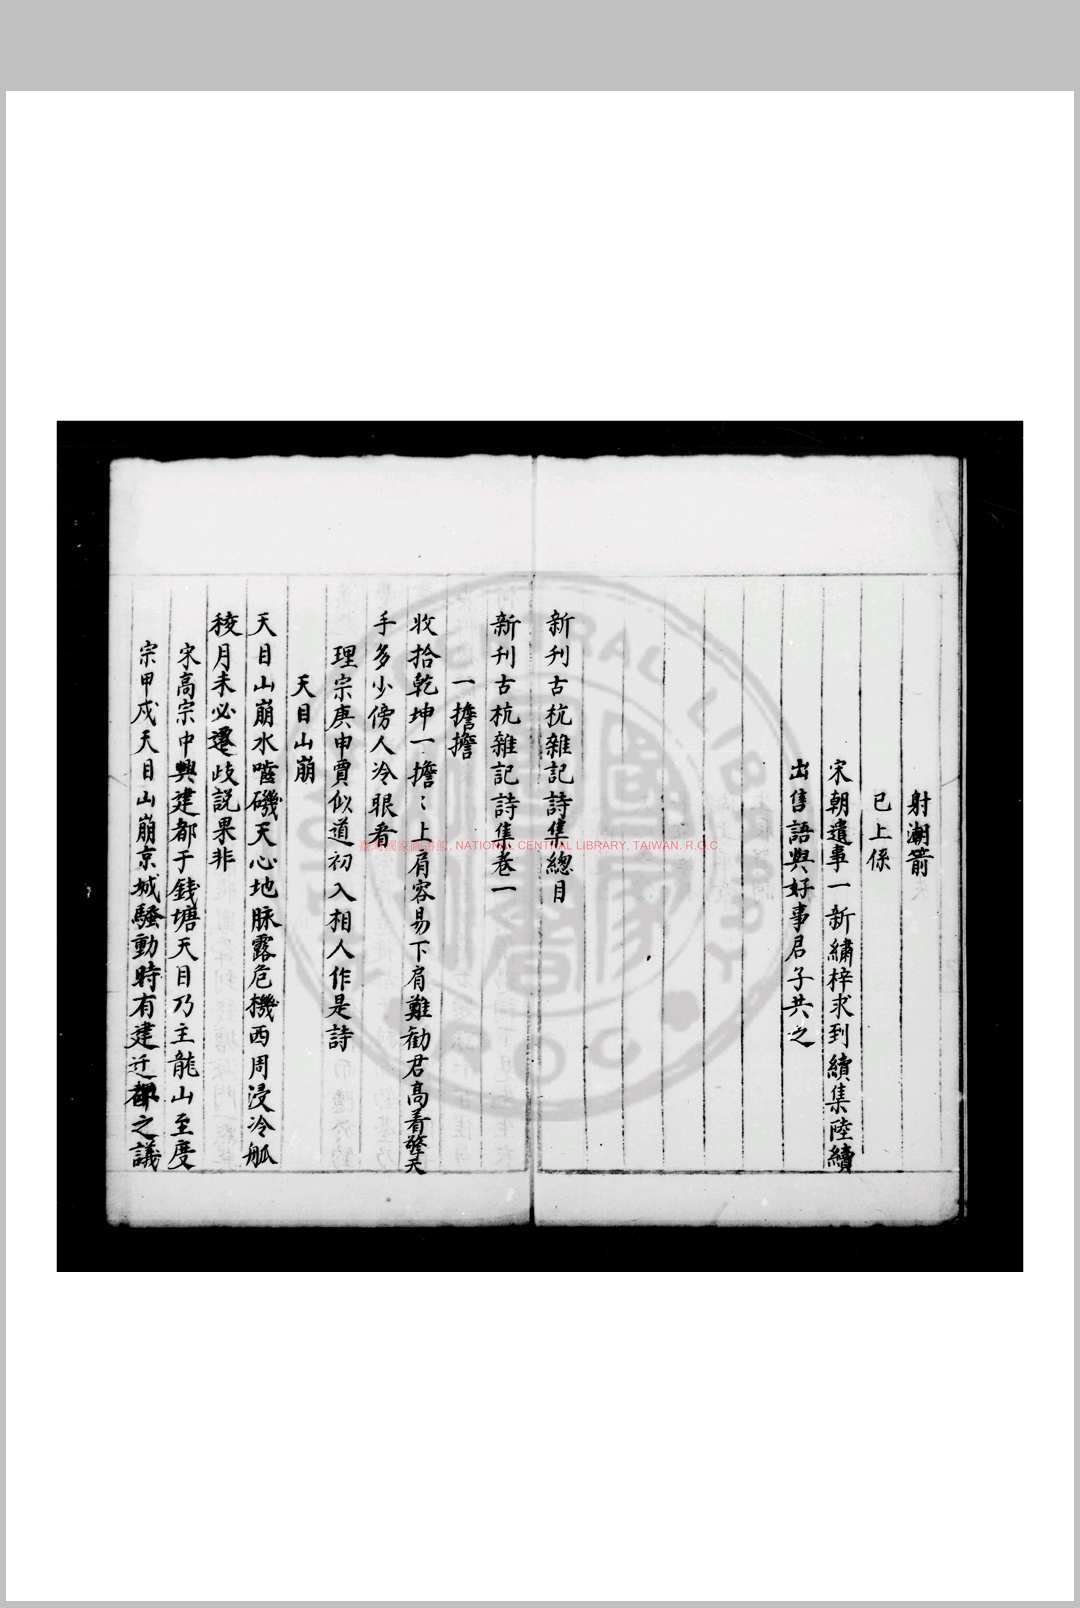 射潮箭
已上係
宋朝遺事一新繡梓求到續集陸續
出售語與好事君子共之
新刊古杭雜記詩集總目
新刊古杭雜記詩集卷一
一擔擔
收拾乾坤一擔〻上肩容易下肩難勸君高着擎天
手多少傍人冷眼看
理宗庚申賈似道初入相人作是詩
天目山崩
天目山崩水嚙磯天心地脉露危機西周浸冷觚
稜月未必遷岐説果非
宋高宗中興建都于錢塘天目乃主龍山至度
宗甲戍天目山崩京城騷動時有建迁都之議
NATIONAL CENTRAL LIBRARY, TAIWAN. R.O.C